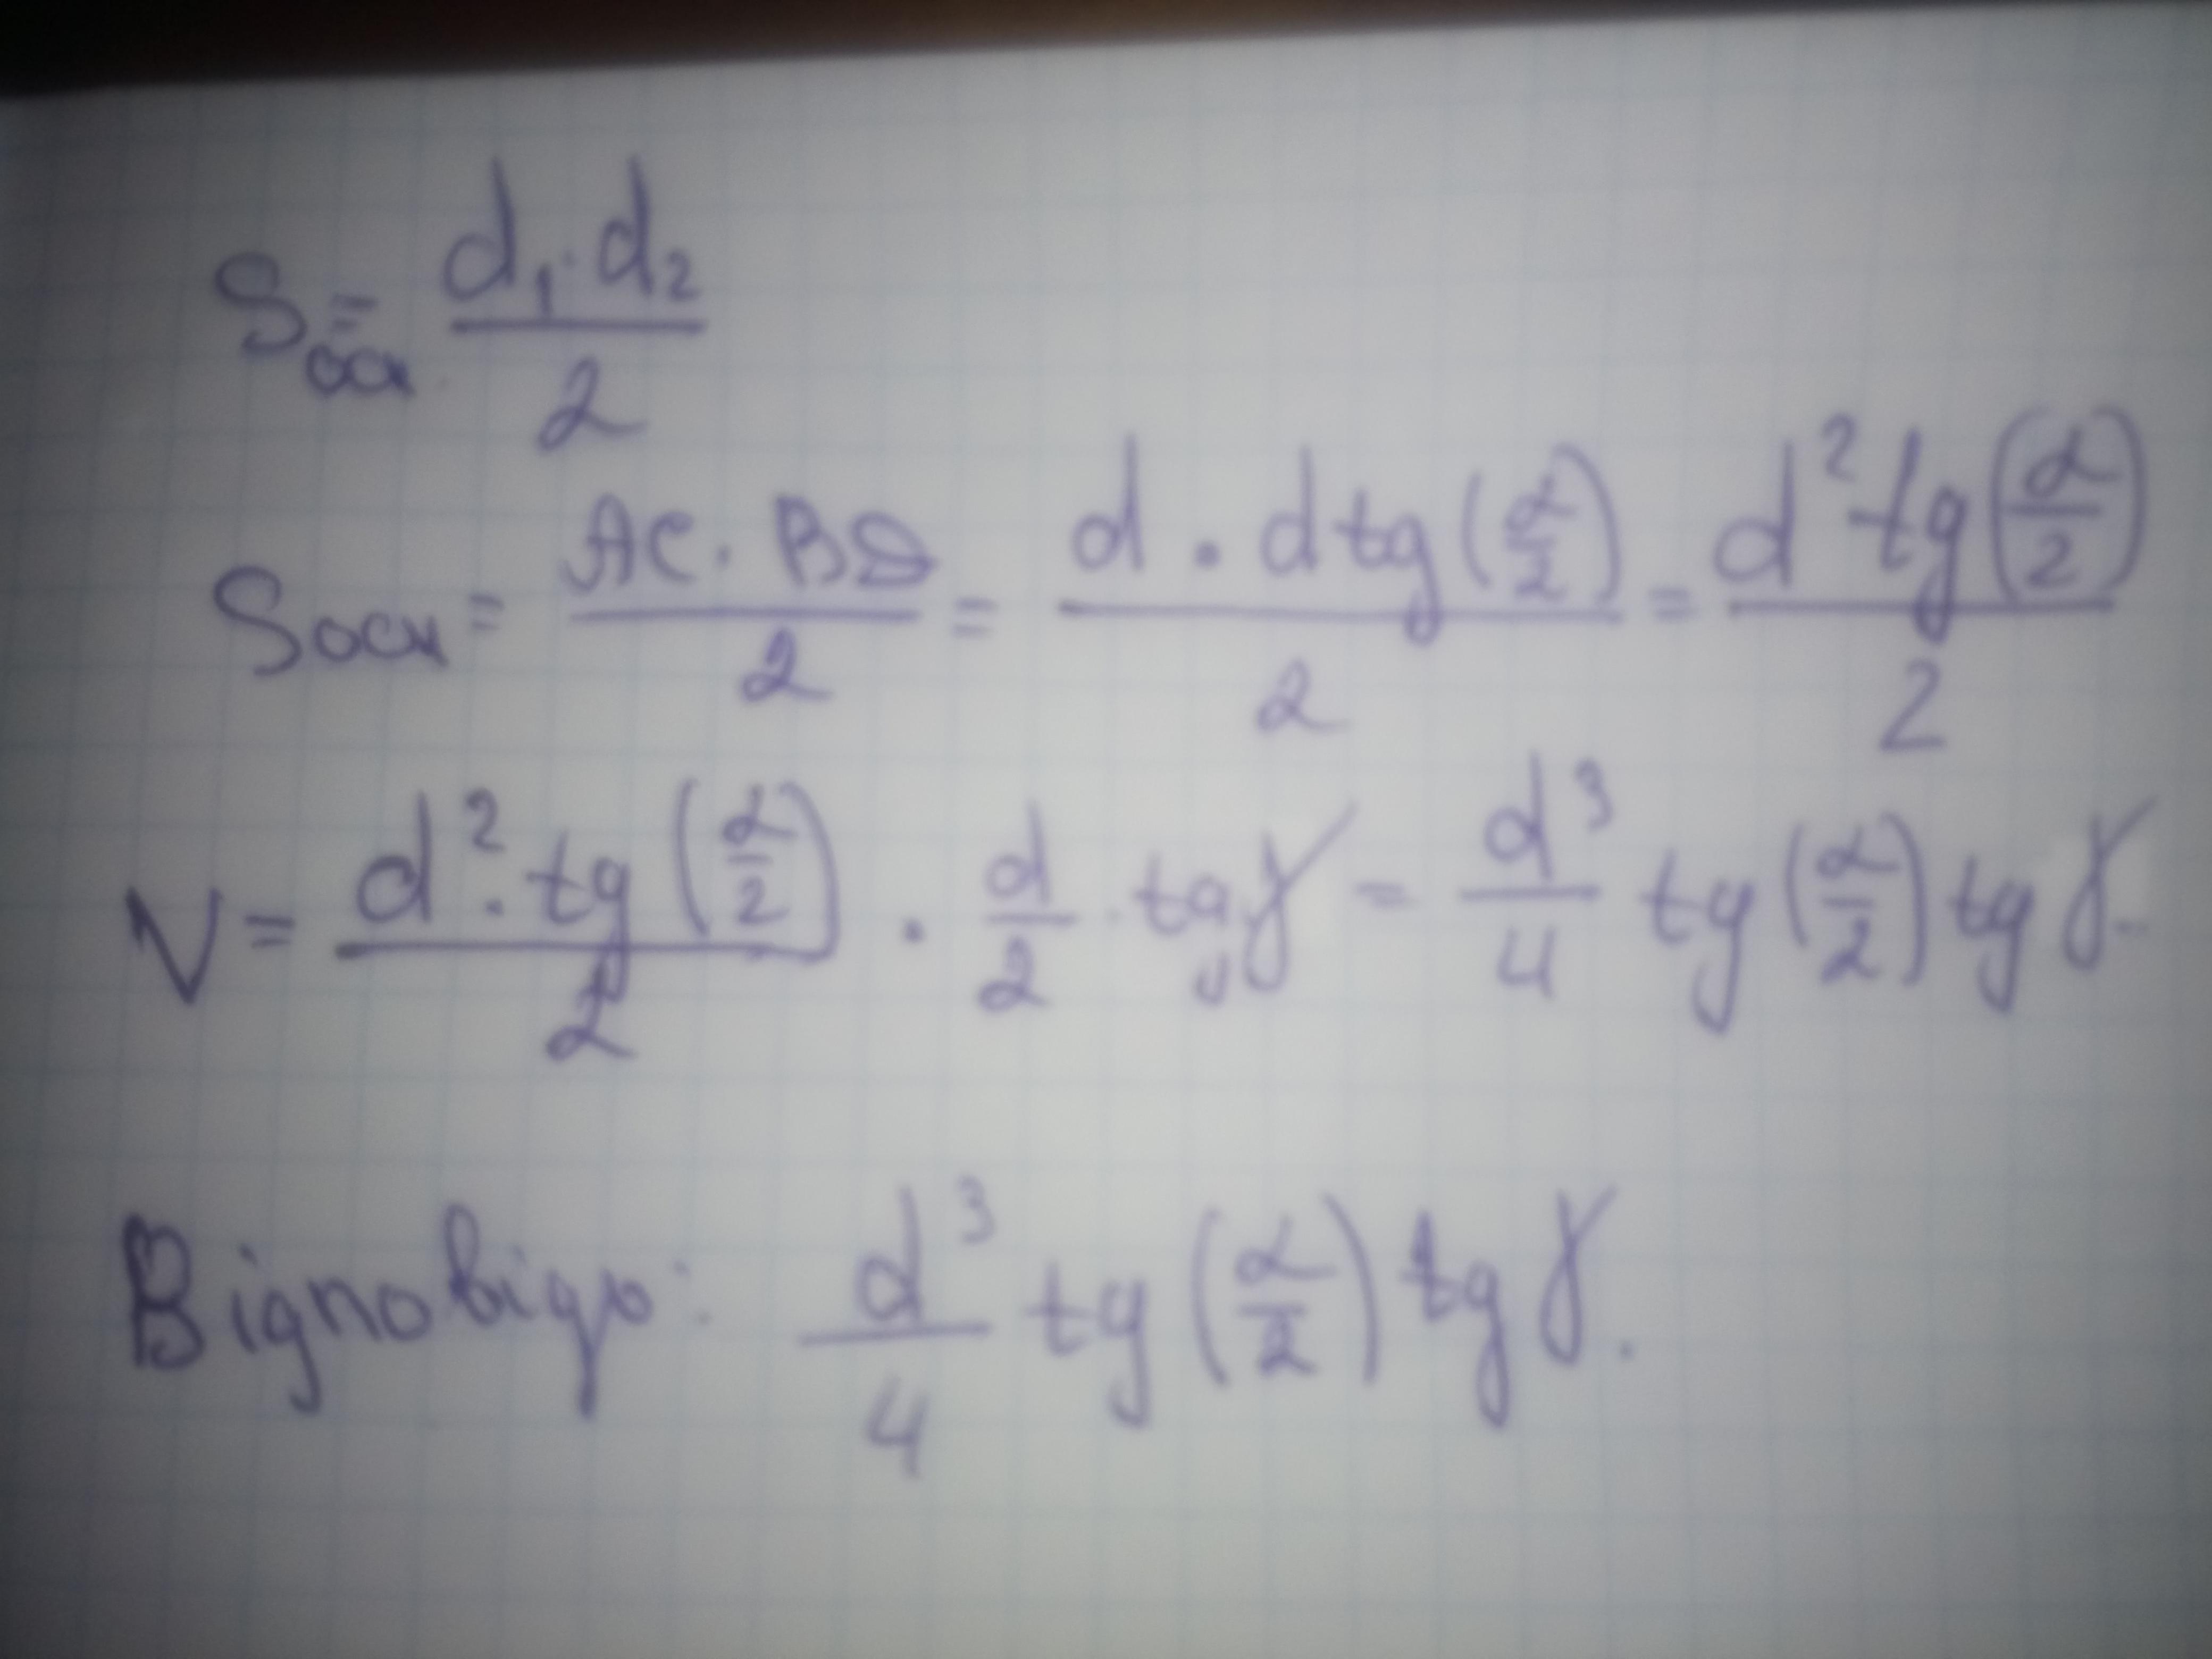 Sосн = d₁·d₂/2
Sосн = AC·BD/2 = d·d tg(α/2)/2 = d² tg(α/2)/2
V = d²·tg(α/2)/2 · d/2 · tg γ = d³/4 tg(α/2) tg γ.
Відповідь: d³/4 tg(α/2) tg γ.